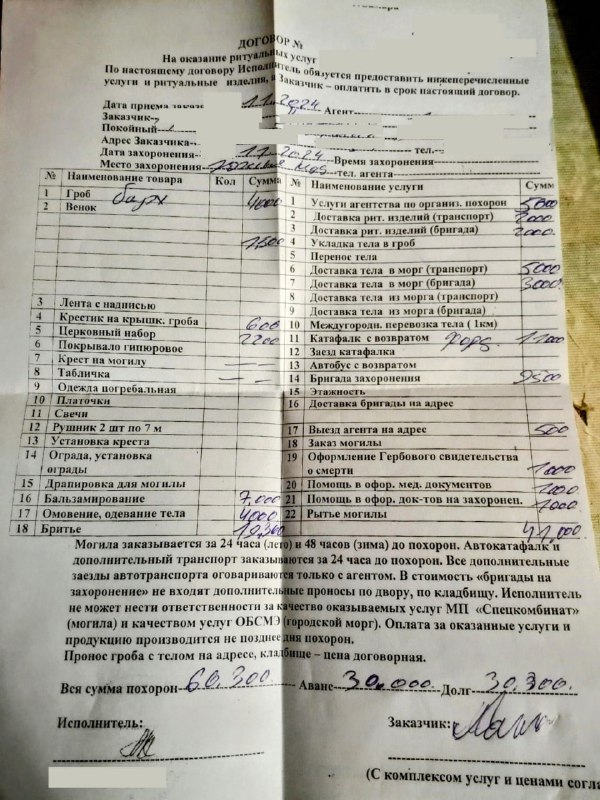 ДОГОВОР №
На оказание ритуальных услуг
По настоящему договору Исполнитель обязуется предоставить нижеперечисленные
услуги и ритуальные изделия, а Заказчик – оплатить в срок настоящий договор.
Дата приема заказа 11 2024 Агент
Заказчик
Покойный
Адрес Заказчика тел.
Дата захоронения 11 2024 Время захоронения
Место захоронения тел. агента
№ Наименование товара Кол Сумма
1 Гроб барх 4000
2 Венок
1,500
3 Лента с надписью
4 Крестик на крышк. гроба 600
5 Церковный набор 2200
6 Покрывало гипюровое
7 Крест на могилу — —
8 Табличка — —
9 Одежда погребальная
10 Платочки
11 Свечи
12 Рушник 2 шт по 7 м
13 Установка креста
14 Ограда, установка
ограды
15 Драпировка для могилы
16 Бальзамирование 7,000
17 Омовение, одевание тела 4000
18 Бритье 19,300
№ Наименование услуги Сумм
1 Услуги агентства по организ. похорон 5000
2 Доставка рит. изделий (транспорт) 2000
3 Доставка рит. изделий (бригада) 2000.
4 Укладка тела в гроб
5 Перенос тела
6 Доставка тела в морг (транспорт) 5000
7 Доставка тела в морг (бригада) 3000.
8 Доставка тела из морга (транспорт)
9 Доставка тела из морга (бригада)
10 Междугородн. перевозка тела ( 1км)
11 Катафалк с возвратом Форд. 11000
12 Заезд катафалка
13 Автобус с возвратом
14 Бригада захоронения 9500
15 Этажность
16 Доставка бригады на адрес
17 Выезд агента на адрес 500
18 Заказ могилы
19 Оформление Гербового свидетельства
о смерти 1000
20 Помощь в офор. мед. документов 1000
21 Помощь в офор. док-тов на захоронен. 1000
22 Рытье могилы
41,000
Могила заказывается за 24 часа (лето) и 48 часов (зима) до похорон. Автокатафалк и
дополнительный транспорт заказываются за 24 часа до похорон. Все дополнительные
заезды автотранспорта оговариваются только с агентом. В стоимость «бригады на
захоронение» не входят дополнительные проносы по двору, по кладбищу. Исполнитель
не может нести ответственности за качество оказываемых услуг МП «Спецкомбинат»
(могила) и качеством услуг ОБСМЭ (городской морг). Оплата за оказанные услуги и
продукцию производится не позднее дня похорон.
Пронос гроба с телом на адресе, кладбище – цена договорная.
Вся сумма похорон 60.300 Аванс 30.000 Долг 30.300.
Исполнитель: Заказчик:
(С комплексом услуг и ценами согла